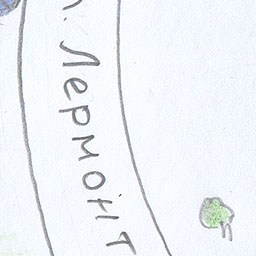 Лермонт